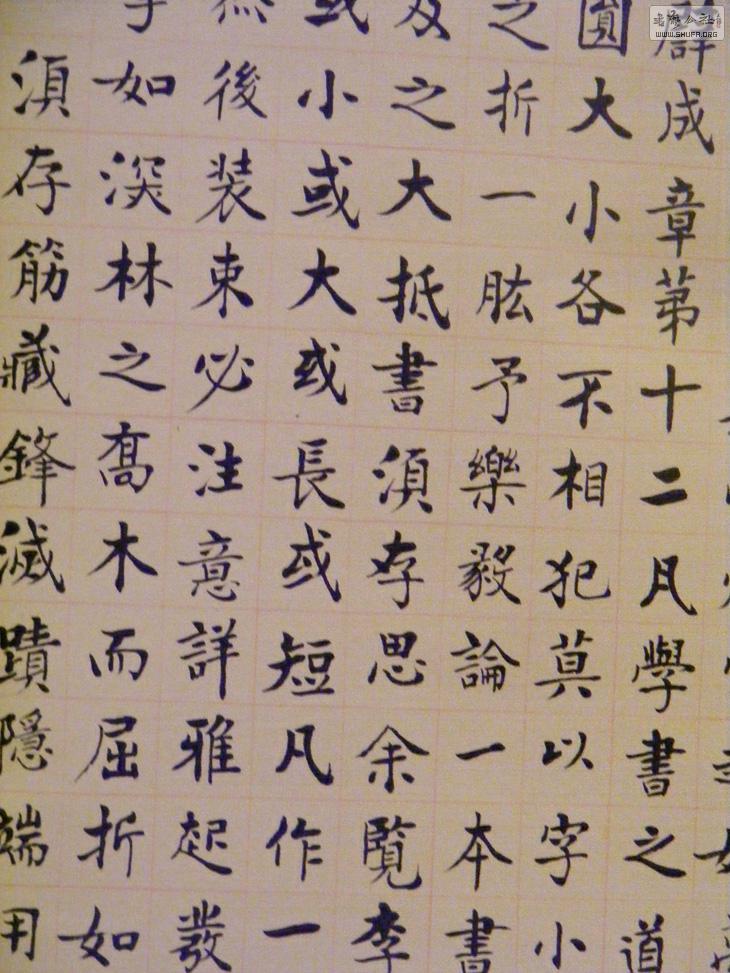 成章第十二凡學書之道
圓大小各不相犯莫以字小
之折一肱予樂毅論一本書
及之大抵書須存思余覽李
或小或大或長或短凡作一
後装束必注意詳雅起發
如深林之喬木而屈折如
須存筋藏鋒滅蹟隱端用
WWW.SHUFA.ORG